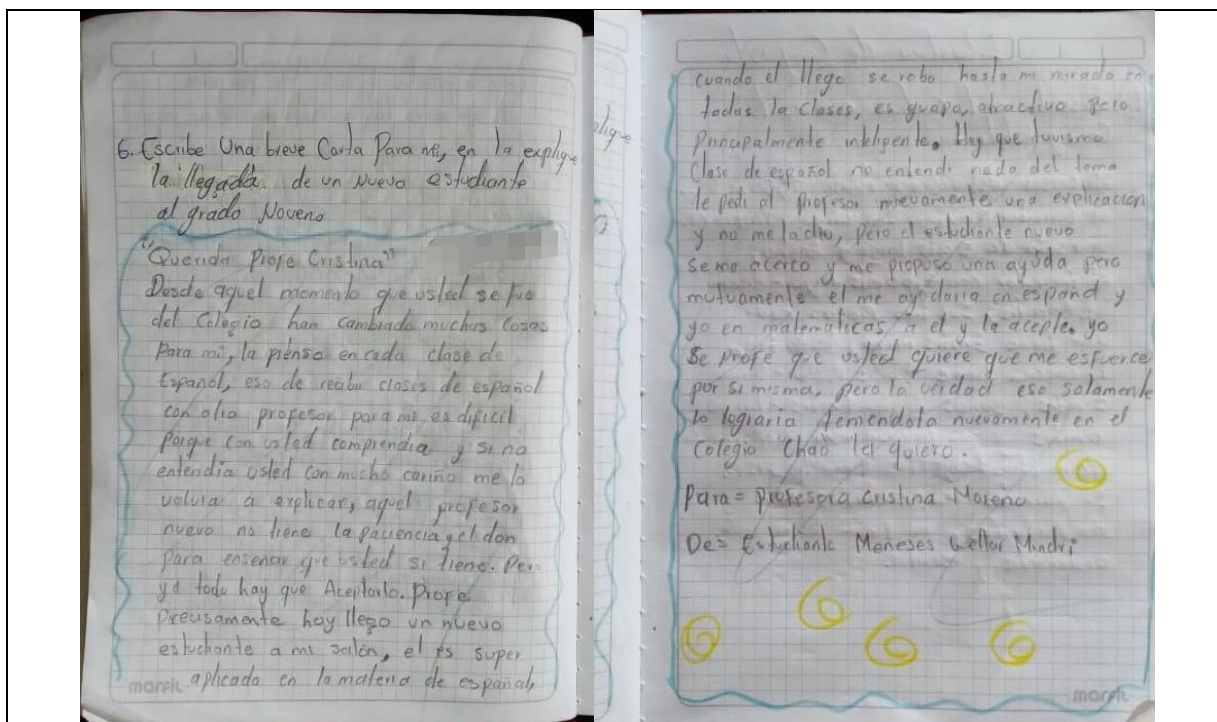 6. Escribe Una breve Carta Para mi, en la explique
la llegada de un Nuevo estudiante
al grado Noveno
"Querida Profe Cristina"
Desde aquel momento que usted se fue
del Colegio han cambiado muchas Cosas
Para mi, la pienso en cada clase de
Español, eso de recibir clases de español
con otro profesor para mi es dificil
Porque con usted comprendia y si no
entendia usted con mucho cariño me lo
volvia a explicar, aquel profesor
nuevo no tiene la paciencia y el don
para enseñar que usted si tiene. Per
ya todo hay que Aceptarlo. Profe
Precisamente hoy llego un nuevo
estudiante a mi salón, el es super
aplicado en la materia de español,
marfil
plique
cuando el llego se robo hasta mi mirada en
todas la clases, es guapo, atractivo Pero
Principalmente inteligente. Hoy que tuvismo
Clase de español no entendi nada del tema
le pedi al profesor nuevamente una explicacion
y no me la dio, pero el estudiante nuevo
se me acerco y me propuso una ayuda pero
mutuamente el me ayudaria en español y
yo en matematicas a el y la acepte. yo
Se profe que usted quiere que me esfuerce
por si misma, pero la verdad eso solamente
lo lograria teniendola nuevamente en el
Colegio Chao la quiero.
Para = profesora Cristina Moreno
De = Estudiante Meneses
marfil